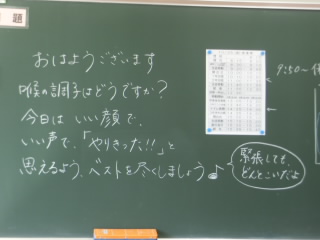 題
おはようございます
喉の調子はどうですか?
今日は いい顔で、
いい声で、「やりきった!!」と
思えるよう、ベストを尽くしましょう♪
緊張しても、
どんとこいだよ
9:50〜